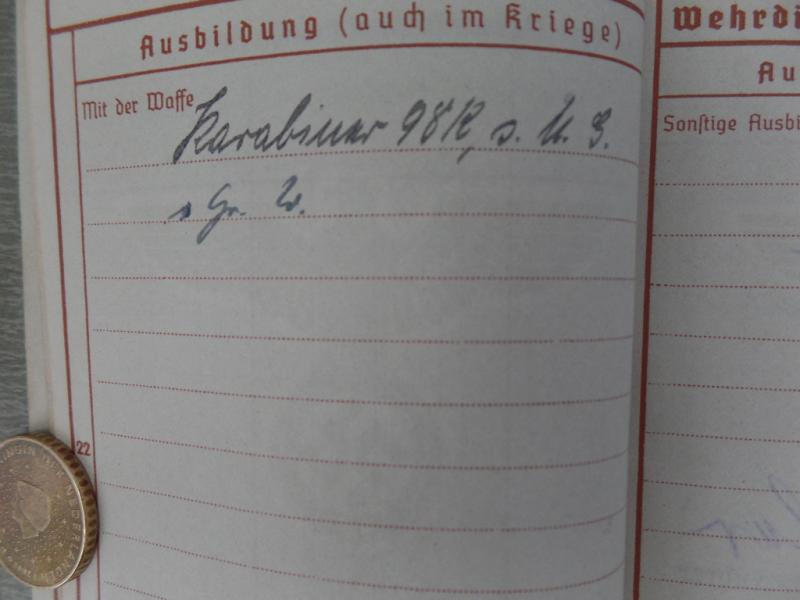 Ausbildung (auch im Kriege)
Mit der Waffe Karabiner 98K, s. M. G.
s Gr. W.
22
Wehrdi
Au
Sonstige Ausbi